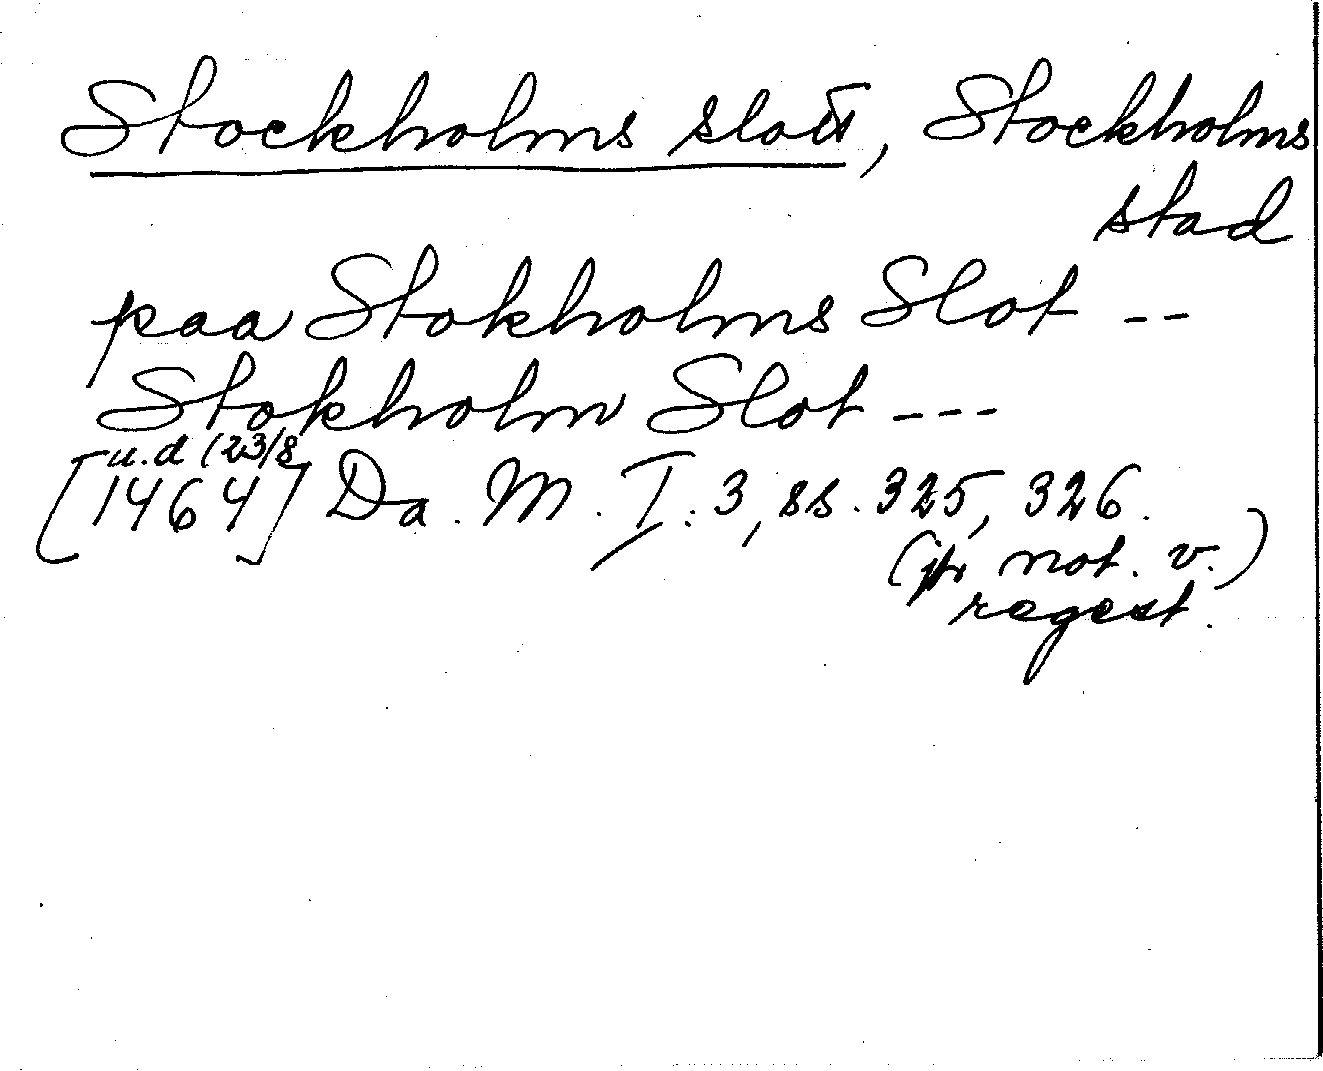 Stockholms slott, Stockholms
stad
paa Stokholms Slot --
Stokholm Slot ---
u.d (23/8
[1464] Da. M. I:3, ss. 325, 326.
(jfr not. v.)
regest.